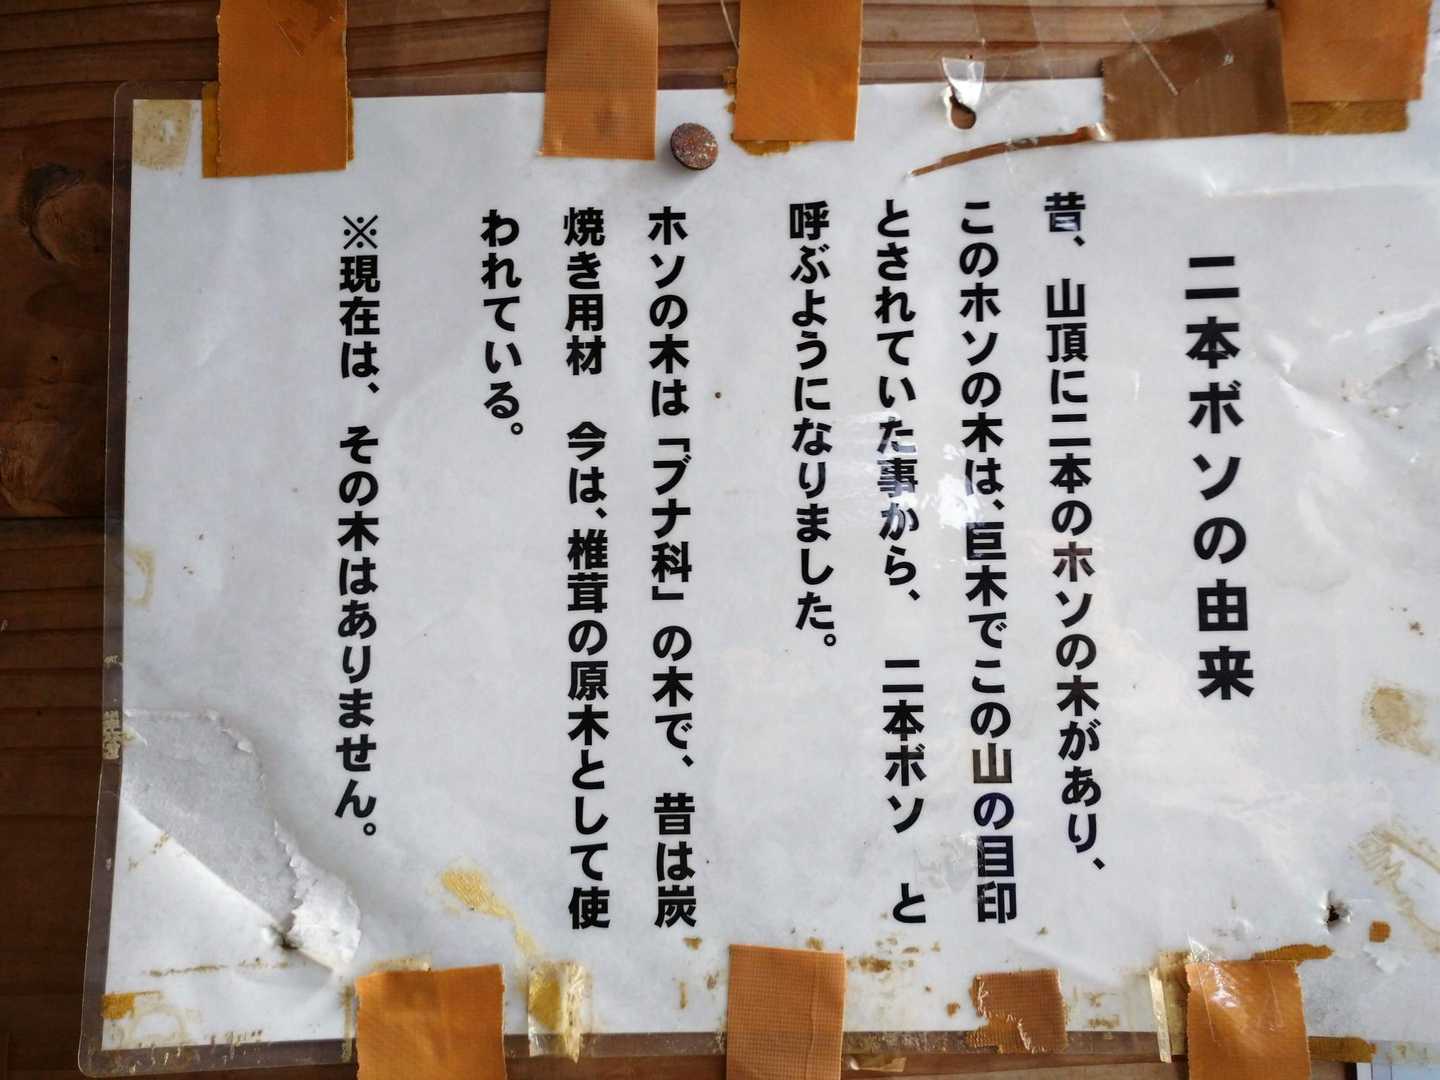 二本ボソの由来
昔、山頂に二本のホソの木があり、
このホソの木は、巨木でこの山の目印
とされていた事から、　二本ボソ　と
呼ぶようになりました。
ホソの木は「ブナ科」の木で、昔は炭
焼き用材　今は、椎茸の原木として使
われている。
※現在は、その木はありません。